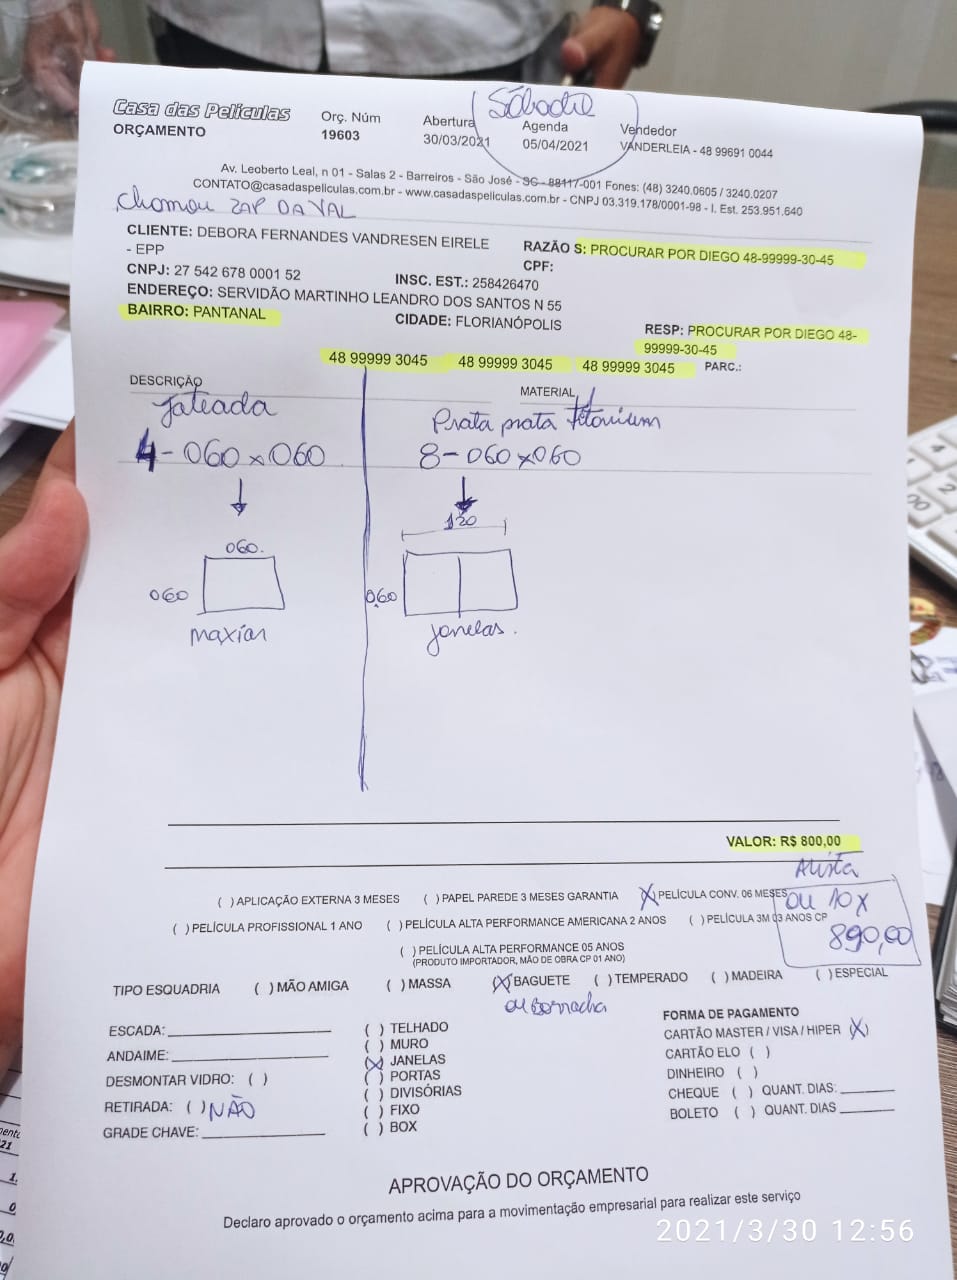 Casa das Películas
ORÇAMENTO
Orç. Núm
19603
Abertura
30/03/2021
Sábado
Agenda
05/04/2021
Vendedor
VANDERLEIA - 48 99691 0044
Av. Leoberto Leal, n 01 - Salas 2 - Barreiros - São José - SC - 88117-001 Fones: (48) 3240.0605 / 3240.0207
CONTATO@casadaspeliculas.com.br - www.casadaspeliculas.com.br - CNPJ 03.319.178/0001-98 - I. Est. 253.951.640
chamou ZAP DA VAL
CLIENTE: DEBORA FERNANDES VANDRESEN EIRELE
- EPP
RAZÃO S: PROCURAR POR DIEGO 48-99999-30-45
CPF:
CNPJ: 27 542 678 0001 52
INSC. EST.: 258426470
ENDEREÇO: SERVIDÃO MARTINHO LEANDRO DOS SANTOS N 55
BAIRRO: PANTANAL
CIDADE: FLORIANÓPOLIS
RESP: PROCURAR POR DIEGO 48-
99999-30-45
48 99999 3045 48 99999 3045 48 99999 3045 PARC.:
DESCRIÇÃO
MATERIAL
Jateada
4-060x060
060.
060
maxiar
Prata prata titanium
8-060x060
120
0,60
janelas.
VALOR: R$ 800,00
Avista
ou 10x
890,00
( ) APLICAÇÃO EXTERNA 3 MESES ( ) PAPEL PAREDE 3 MESES GARANTIA (X) PELÍCULA CONV. 06 MESES
( ) PELÍCULA PROFISSIONAL 1 ANO ( ) PELÍCULA ALTA PERFORMANCE AMERICANA 2 ANOS ( ) PELÍCULA 3M 03 ANOS CP
( ) PELÍCULA ALTA PERFORMANCE 05 ANOS
(PRODUTO IMPORTADOR, MÃO DE OBRA CP 01 ANO)
TIPO ESQUADRIA ( ) MÃO AMIGA ( ) MASSA (X) BAGUETE ( ) TEMPERADO ( ) MADEIRA ( ) ESPECIAL
ou borracha
ESCADA:
ANDAIME:
DESMONTAR VIDRO: ( )
RETIRADA: ( ) NÃO
GRADE CHAVE:
( ) TELHADO
( ) MURO
(X) JANELAS
( ) PORTAS
( ) DIVISÓRIAS
( ) FIXO
( ) BOX
FORMA DE PAGAMENTO
CARTÃO MASTER / VISA / HIPER (X)
CARTÃO ELO ( )
DINHEIRO ( )
CHEQUE ( ) QUANT. DIAS:
BOLETO ( ) QUANT. DIAS
APROVAÇÃO DO ORÇAMENTO
Declaro aprovado o orçamento acima para a movimentação empresarial para realizar este serviço
2021/3/30 12:56